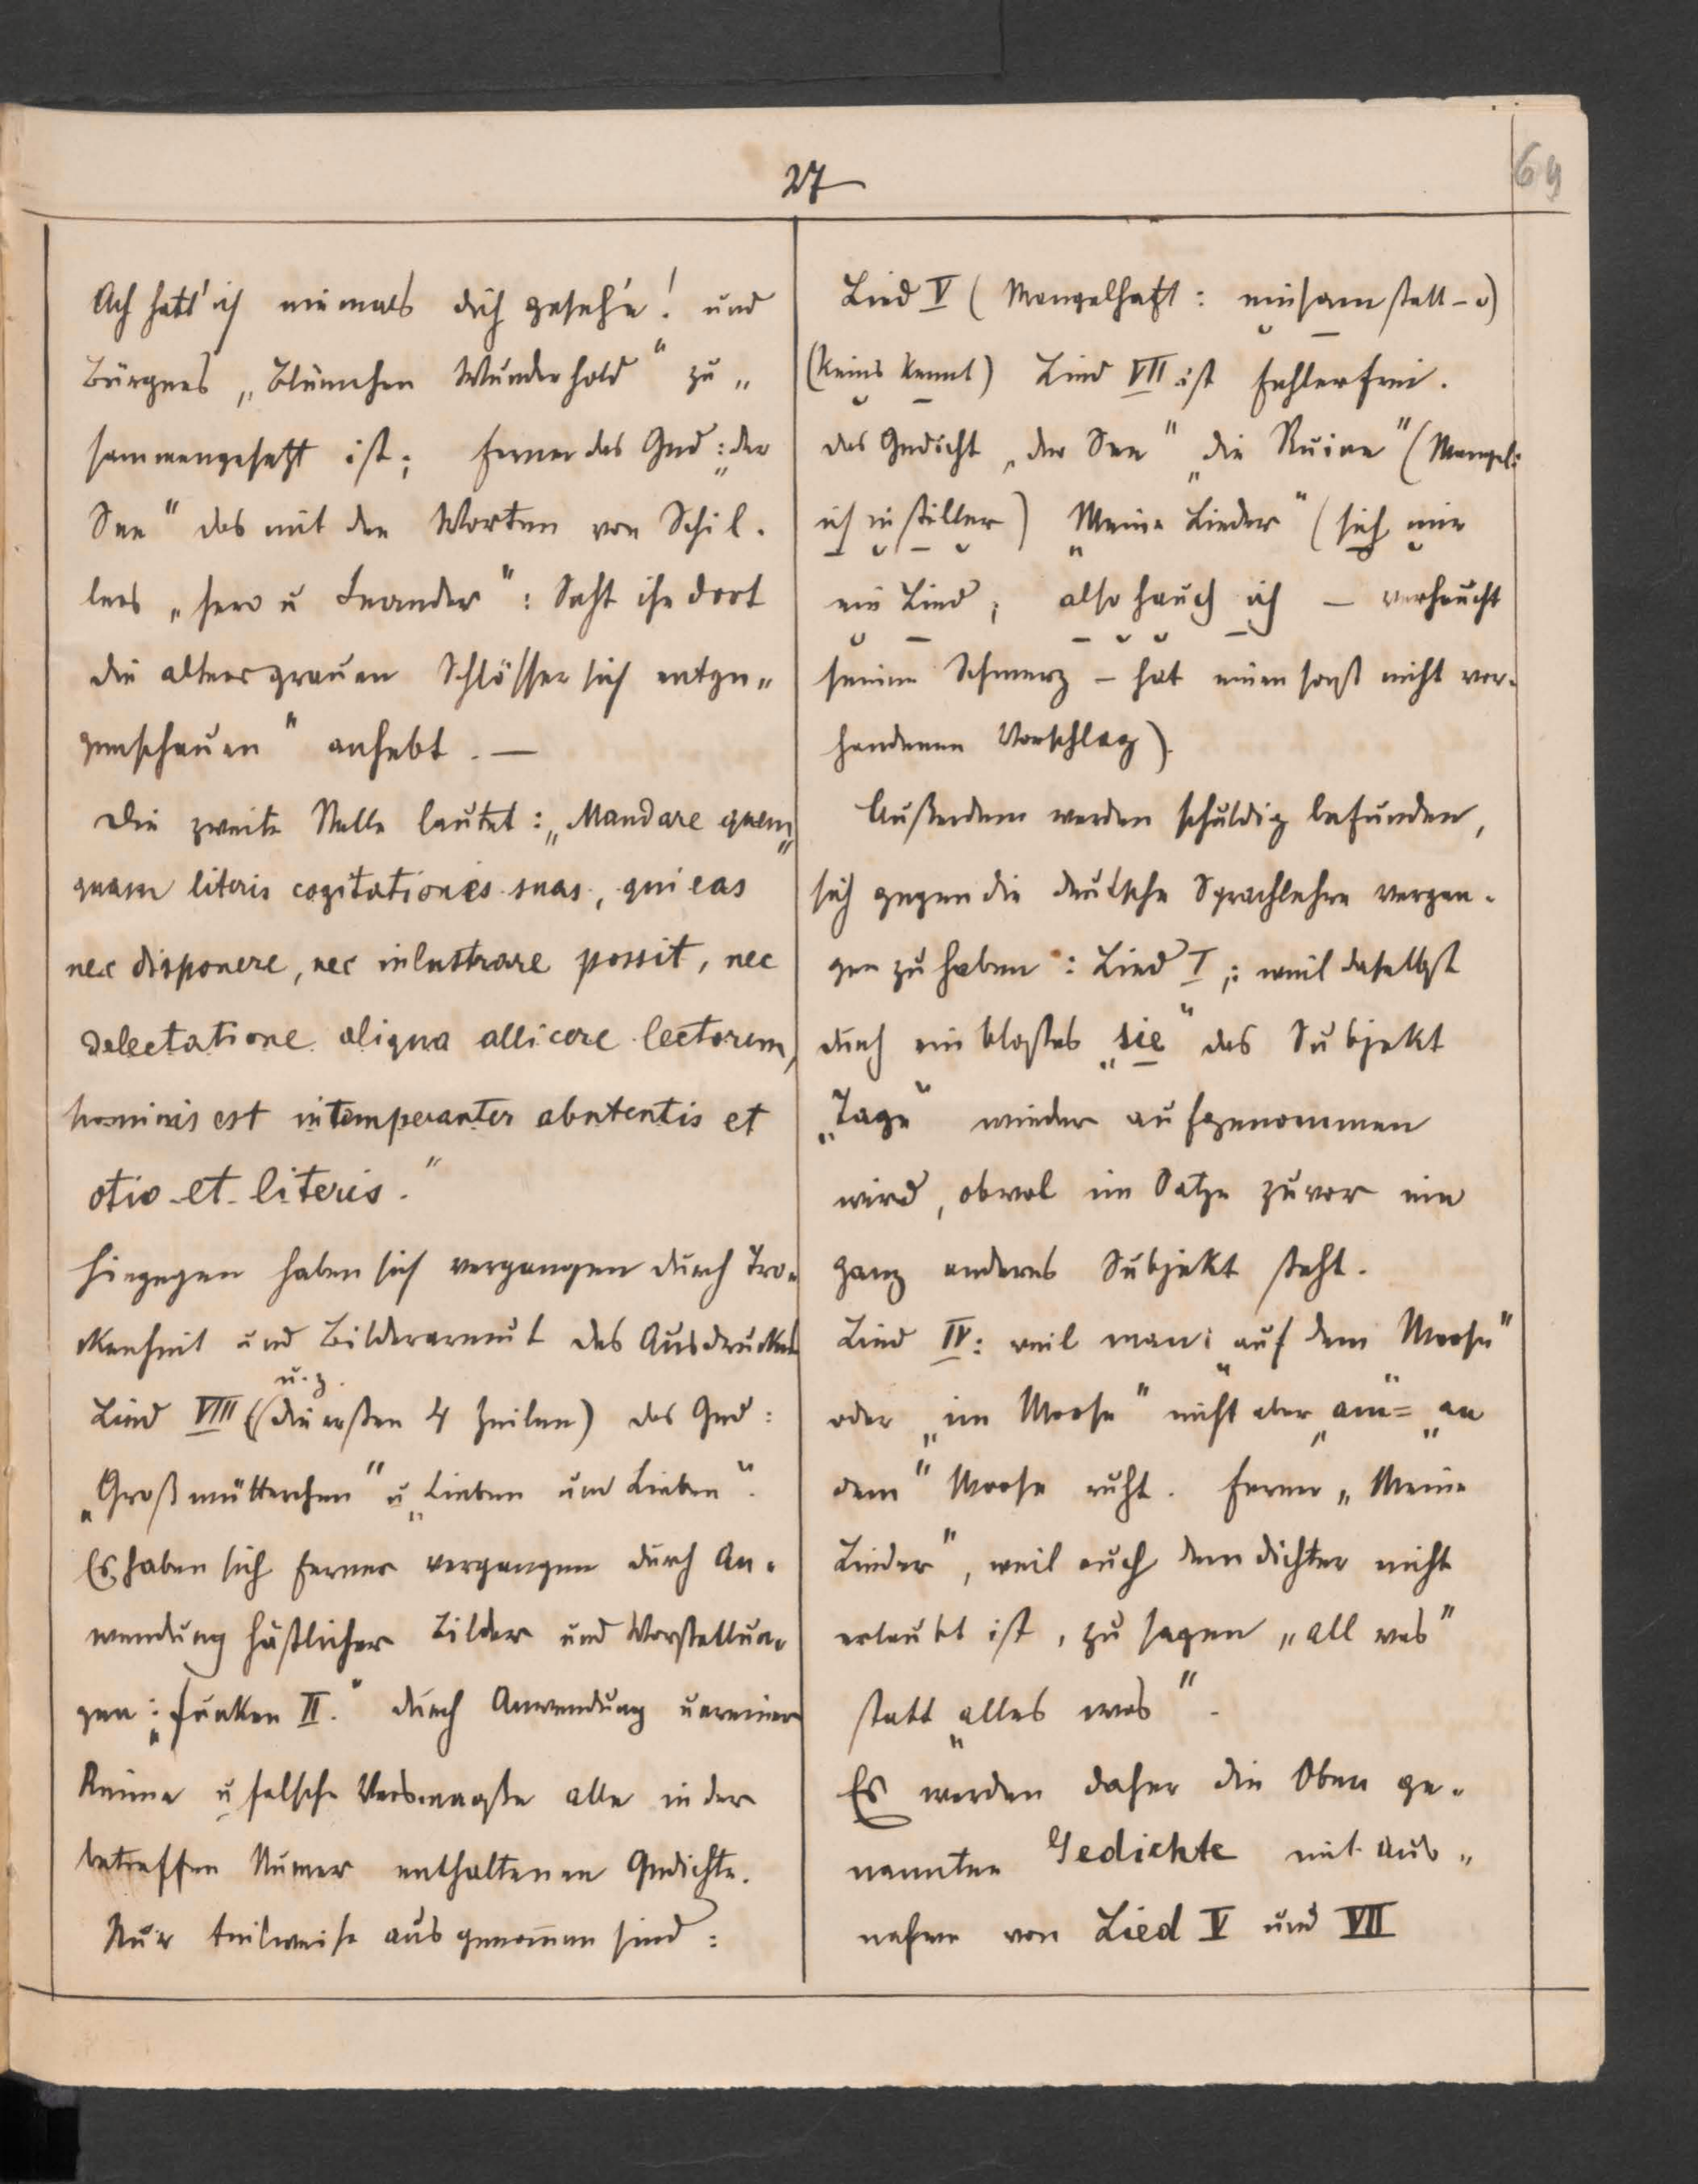 27
69
Ach hatt' ich niemals dich geseh'n! und
Bürgers „Blümchen Wunderhold" zu„
sammengesetzt ist; ferner das Ged: „der
See" das mit den Worten von Schil-
lers „Hero u Leander": Seht ihr dort
die altersgrauen Schlösser sich entge„
genschauen" anhebt. —
Die zweite Stelle lautet: „Mandare quem„
quam literis cogitationes suas, qui eas
nec disponere, nec inlustrare possit, nec
delectatione aliqua allicere lectorem,
hominis est intemperanter abutentis et
otio et literis."
Hingegen haben sich vergangen durch Tro-
ckenheit und Bilderarmut des Ausdruckes
u. z.
Lied VIII ((die ersten 4 Zeilen) das Ged:
„Großmütterchen" u „Lieben und Lieben".
Es haben sich ferner vergangen durch An-
wendung häßlicher Bilder und Vorstellun-
gen: „Funken II." durch Anwendung unreiner
Reime u falsche Versmaaße alle in der
betreffen Numer enthaltenen Gedichte.
Nur teilweise ausgenommen sind:
Lied V (Mangelhaft: einsam statt – ᴗ)
(Keins kennt) Lied VII ist fehlerfrei.
das Gedicht „der See" „die Ruine" (Mangel:
ich in stiller) „Meine Lieder" (sich mir
ein Lied; also hauch ich — verhaucht
seinen Schmerz – hat einen sonst nicht vor-
handenen Vorschlag).
Außerdem werden schuldig befunden,
sich gegen die deutsche Sprachlehre vergan-
gen zu haben: Lied I,: weil daselbst
durch ein bloßes „sie" das Subjekt
„Tage" wieder aufgenommen
wird, obwol im Satze zuvor ein
ganz anderes Subjekt steht.
Lied IV: weil man: „auf dem Moose"
oder „im Moose" nicht aber „am" = „an
dem" Moose ruht. Ferner „Meine
Lieder", weil auch dem Dichter nicht
erlaubt ist, zu sagen „all was"
statt „alles was".
Es werden daher die Oben ge-
nannten Gedichte mit Aus„
nahme von Lied V und VII